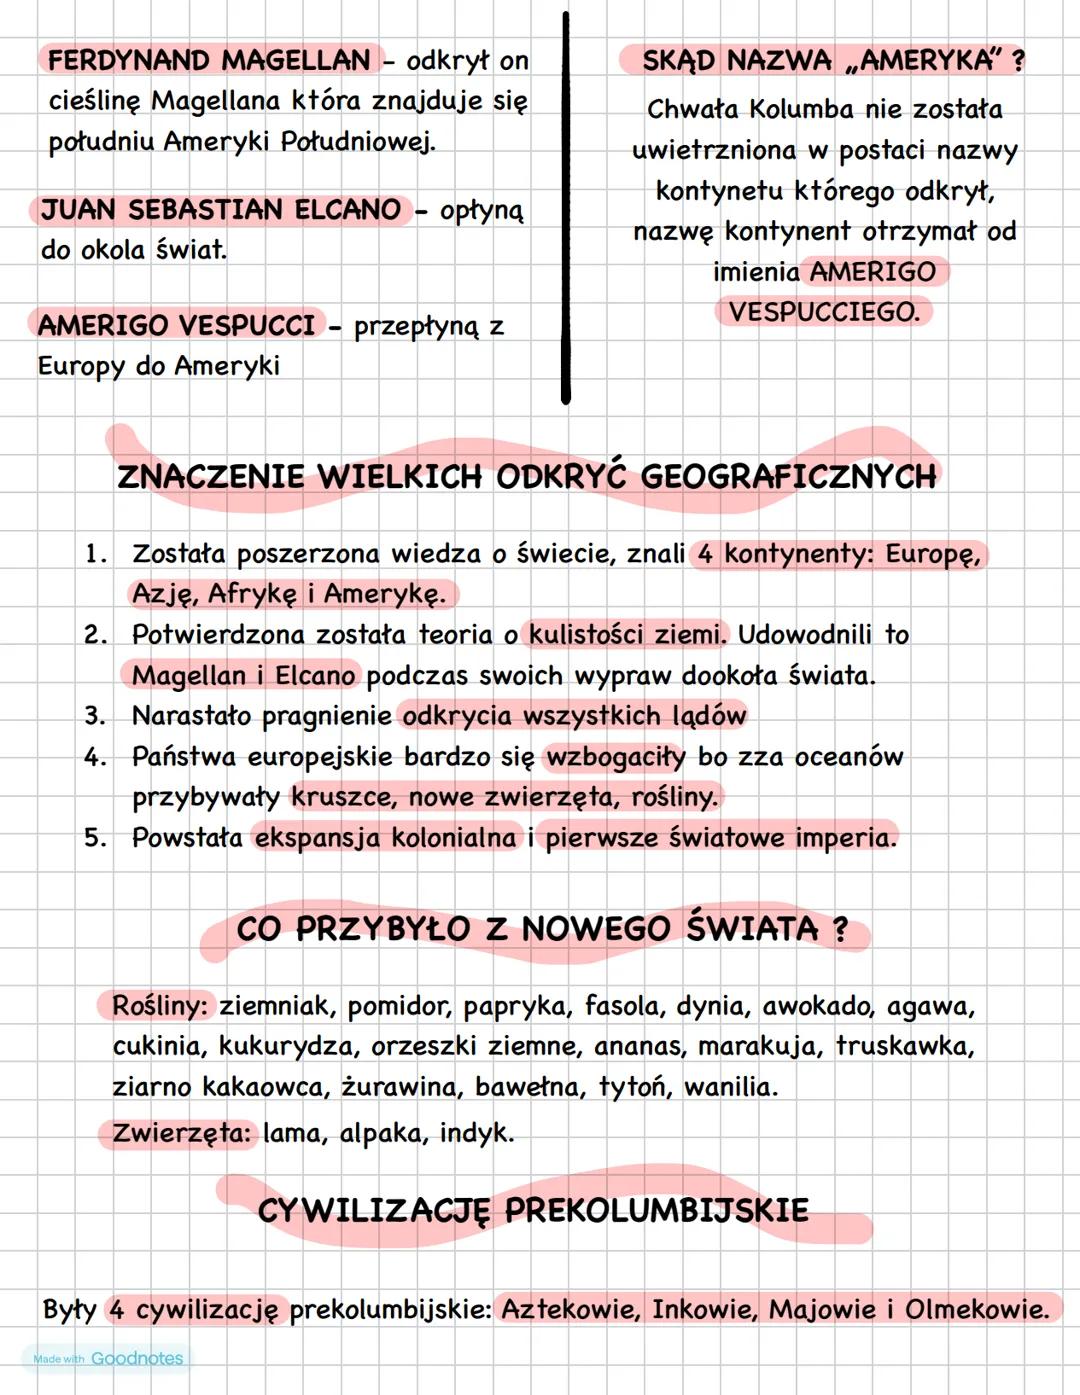 FERDYNAND MAGELLAN - odkrył on
cieślinę Magellana która znajduje się
południu Ameryki Południowej.
JUAN SEBASTIAN ELCANO - opłyną
do okola świat.
AMERIGO VESPUCCI - przepłyną z
Europy do Ameryki
SKĄD NAZWA „AMERYKA" ?
Chwała Kolumba nie została
uwietrzniona w postaci nazwy
kontynetu którego odkrył,
nazwę kontynent otrzymał od
imienia AMERIGO
VESPUCCIEGO.
ZNACZENIE WIELKICH ODKRYĆ GEOGRAFICZNYCH
1. Została poszerzona wiedza o świecie, znali 4 kontynenty: Europę,
Azję, Afrykę i Amerykę.
2. Potwierdzona została teoria o kulistości ziemi. Udowodnili to
Magellan i Elcano podczas swoich wypraw dookoła świata.
3. Narastało pragnienie odkrycia wszystkich lądów
4. Państwa europejskie bardzo się wzbogaciły bo zza oceanów
przybywały kruszce, nowe zwierzęta, rośliny.
5. Powstała ekspansja kolonialna i pierwsze światowe imperia.
CO PRZYBYŁO Z NOWEGO ŚWIATA ?
Rośliny: ziemniak, pomidor, papryka, fasola, dynia, awokado, agawa,
cukinia, kukurydza, orzeszki ziemne, ananas, marakuja, truskawka,
ziarno kakaowca, żurawina, bawełna, tytoń, wanilia.
Zwierzęta: lama, alpaka, indyk.
CYWILIZACJĘ PREKOLUMBIJSKIE
Były 4 cywilizację prekolumbijskie: Aztekowie, Inkowie, Majowie i Olmekowie.
Made with Goodnotes